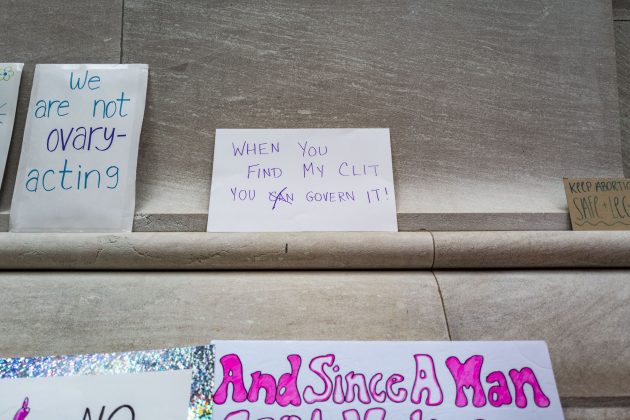 We
are not
ovary-
acting
WHEN YOU
FIND MY CLIT
YOU CAN GOVERN IT!
KEEP
SAFE +
NO
And Since A Man